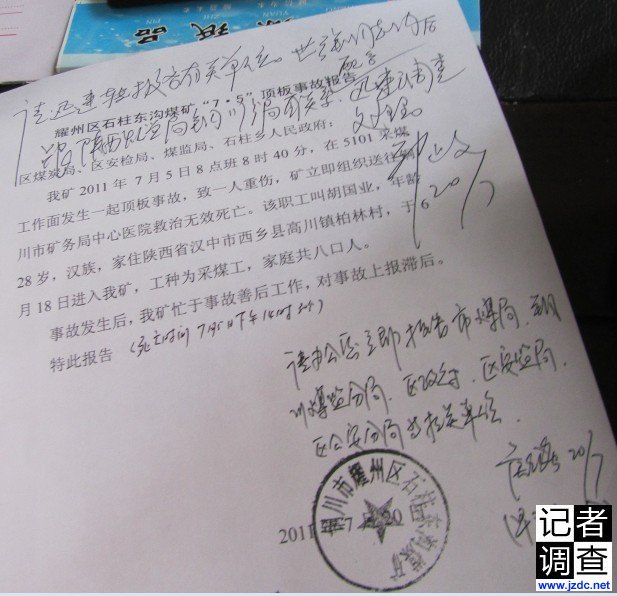 请迅速转报各有关单位。
耀州区石柱东沟煤矿“7·5”顶板事故报告
区煤炭局、区安检局、煤监局、石柱乡人民政府：
我矿 2011 年 7 月 5 日 8 点班 8 时 40 分，在 5101 采煤
工作面发生一起顶板事故，致一人重伤，矿立即组织送往铜
川市矿务局中心医院救治无效死亡。该职工叫胡国业，年龄
28 岁，汉族，家住陕西省汉中市西乡县高川镇柏林村，于 6
月 18 日进入我矿，工种为采煤工，家庭共八口人。
事故发生后，我矿忙于事故善后工作，对事故上报滞后。
特此报告 （死亡时间 7月5日下午14时
20/7
请办公室立即报告市煤局、铜
川煤监分局、区政府、区安监局、
区公安分局等相关单位
20/7
铜川市耀州区石柱东沟煤矿
2011 7 20
记者
调查
www.jzdc.net